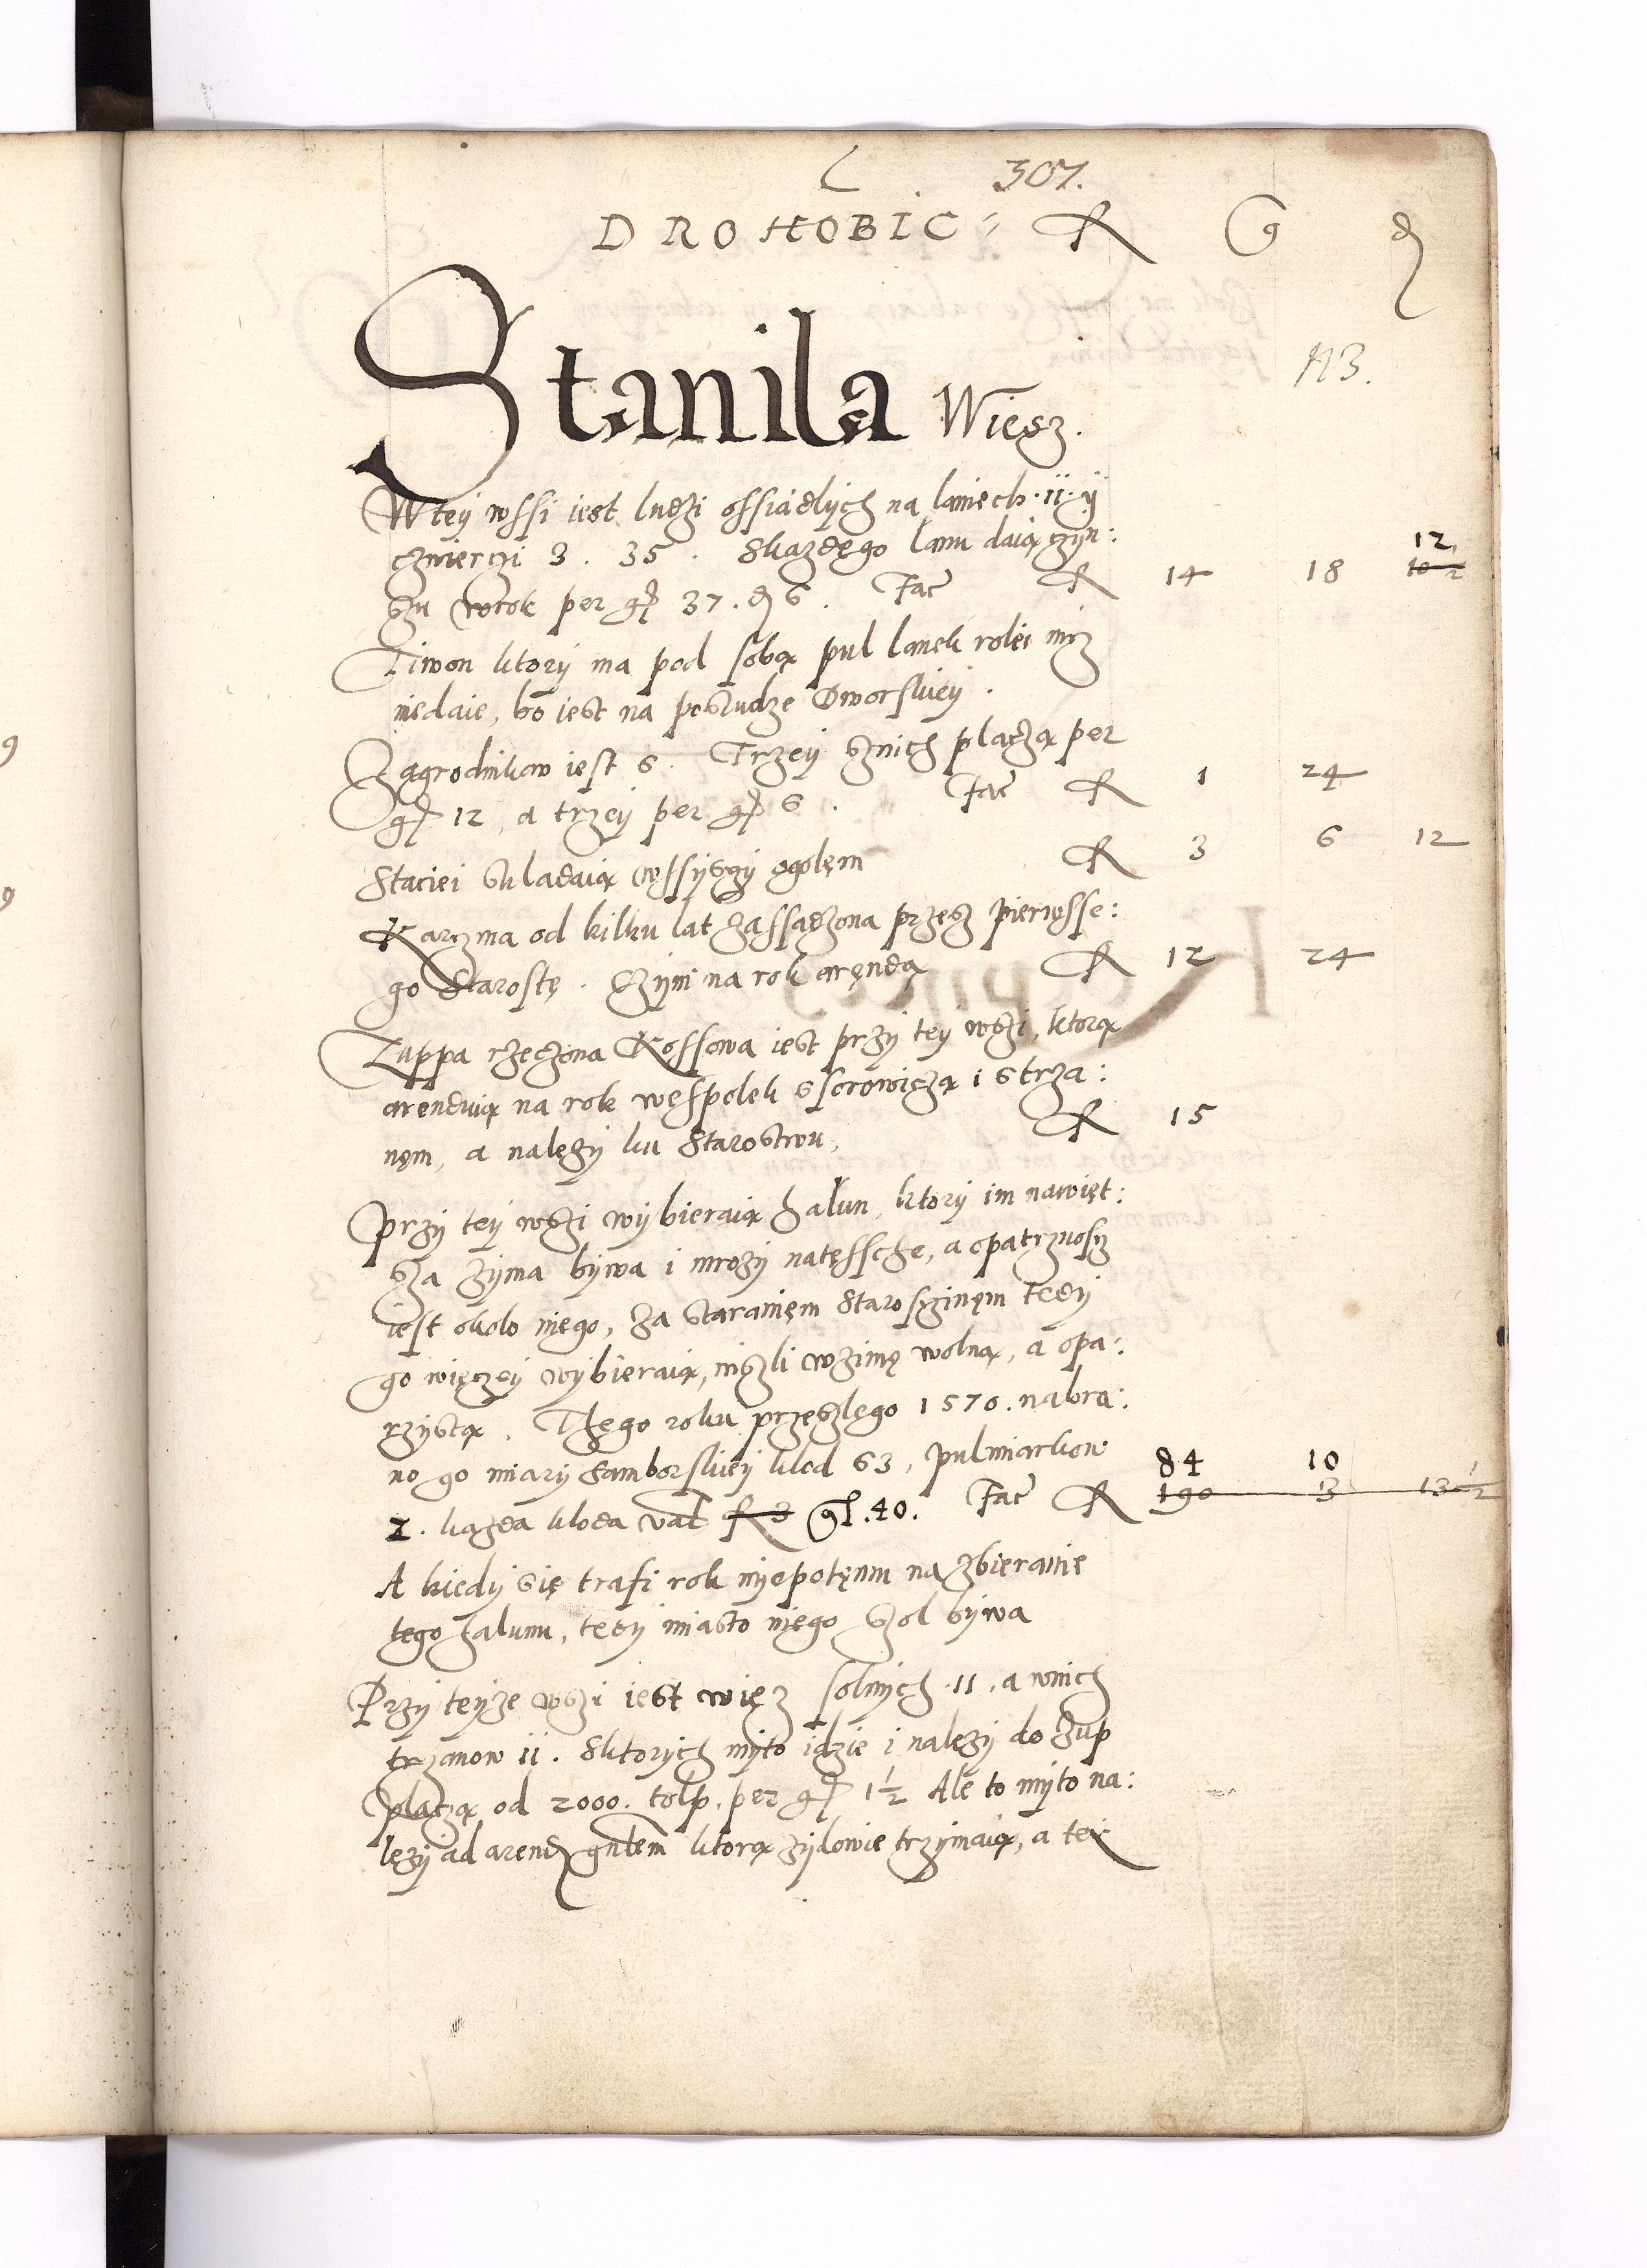 307.
DROHOBIC: R G ₰
NB.
Stanila Wiesz.
W tey wssi iest ludzi ossiadlych na laniech 11. y
czwierczi 3. 35. Skazdego lanu daią czyn:
szu wrok per gr 37. ₰ 6. Fac R 14 18 12
Tiwon ktory ma pod sobą pul lanek rolei nicz
niedaie, bo iest na posludze Dworskiey.
Zagrodnikow iest 6. Trzey znich placzą per
gr 12, a trzey per gr 6. Fac R 1 24
Staciei skladaią wssysczy ogolem R 3 6 12
Karczma od kilku lat zassadzona przesz pierwsse:
go Starostę. Czyni na rok arendą R 12 24
Zuppa rzeczona Kossowa iest przy tey wszi, ktorą
arenduią na rok wespolek ssorowiczą i strza:
nem, a nalezy ku Starostwu, R 15
Przy tey wszi wybieraią halun, ktory im nawięt:
sza zyma bywa i mrozy natęssche, a opatrznoscz
iest okolo niego, za staraniem Starosczinem tedy
go więczey wybieraią, niszli wzimę wolną, a opa:
rzystą. Thego roku przeszlego 1570. nabra:
no go miary Samborskiey klod 63, pulmiarkow 84 10
2. kazda kloda val R 3 gr. 40. Fac R 190 3 13 1/2
A kiedy się trafi rok niepotemu na zbieranie
tego halunu, tedy miasto niego szol bywa
Przy teyze wszi iest wiez solnych 11, a wnich
trzanow 11. Sktorych myto idzie i nalezy do zup
placzą od 2000. tolp. per gr 1 1/2 Ale to myto na:
lezy ad arend gnlem ktorą zydowie trzymaią, a tez